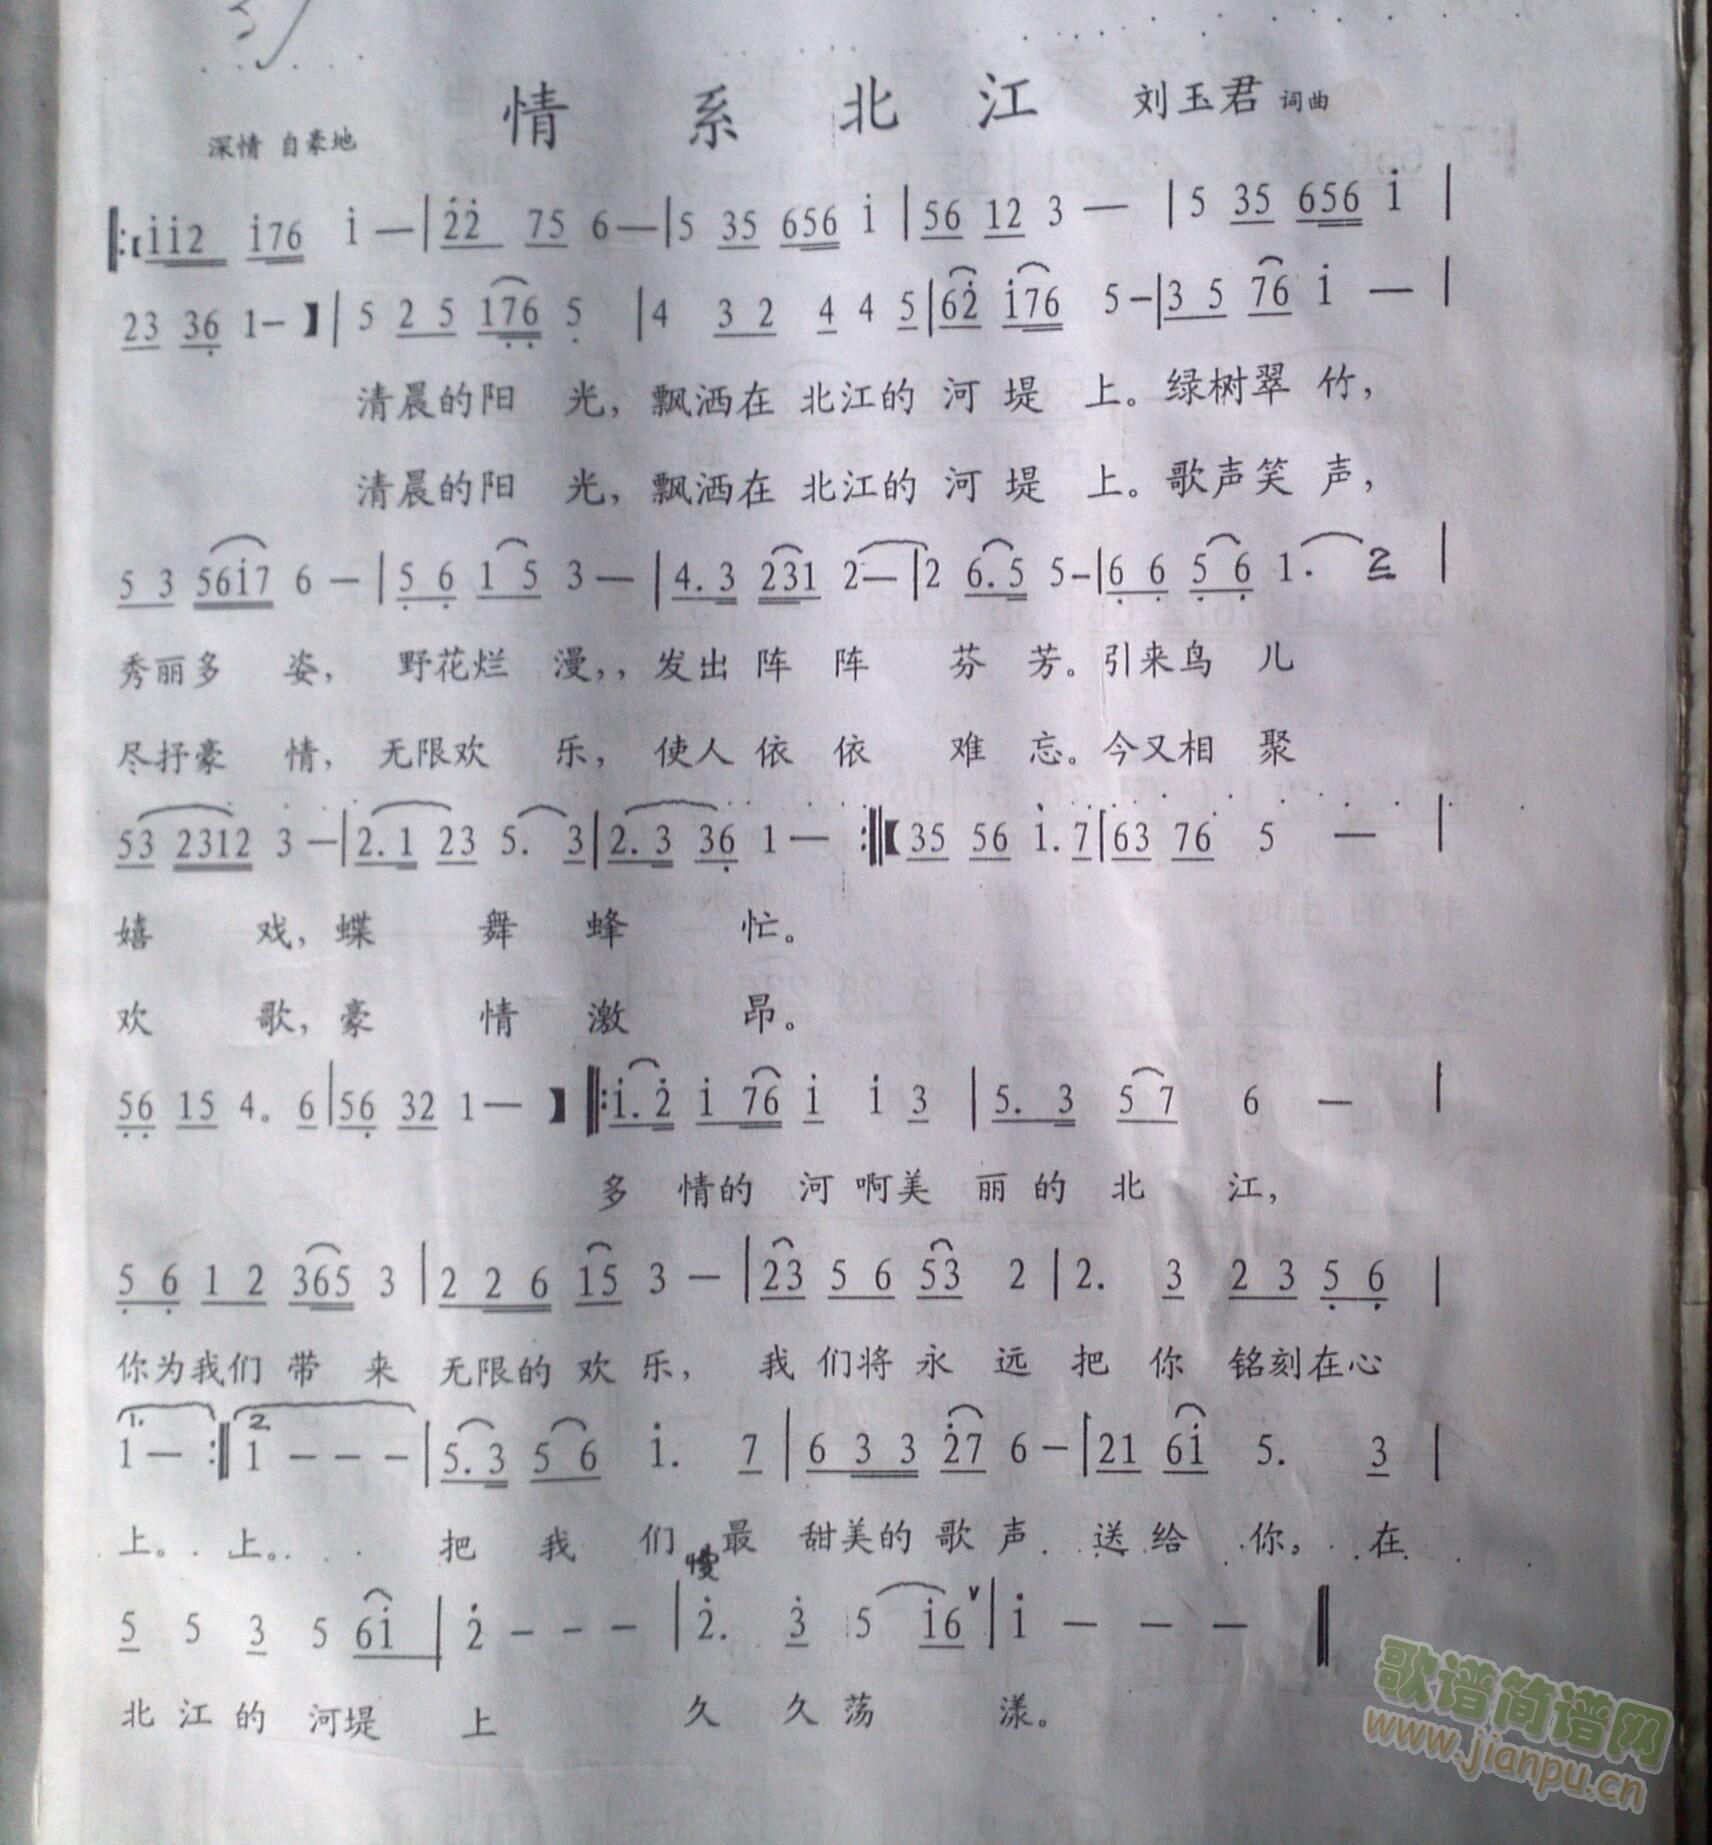 情 系 北 江 刘玉君 词曲
深情 自豪地
‖:【i̇i̇2 i̇76 i̇ — | 2̇2̇ 75 6 — | 5 35 656 i̇ | 56 12 3 — | 5 35 656 i̇ |
23 36̣ 1 — 】 | 5 2 5 17̣6̣ 5̣ | 4 3 2 4 4 5 | 62̇ i̇76 5 — | 3 5 76 i̇ — |
清晨的阳 光，飘洒在 北江的 河 堤 上。绿树翠 竹，
清晨的阳 光，飘洒在 北江的 河 堤 上。歌声笑 声，
5 3 56i̇7 6 — | 5̣ 6̣ 1 5 3 — | 4. 3 231 2 — | 2 6. 5 5 — | 6̣ 6̣ 5̣ 6̣ 1. 2 |
秀丽多 姿， 野花烂 漫，，发出 阵 阵 芬 芳。引来鸟 儿
尽抒豪 情， 无限欢 乐， 使人 依 依 难 忘。今又相 聚
53 2312 3 — | 2. 1 23 5. 3 | 2. 3 36̣ 1 — :‖【 35 56 i̇. 7 | 63 76 5 — |
嬉 戏，蝶 舞 蜂 忙。
欢 歌，豪 情 激 昂。
5̣6̣ 15 4. 6 | 56̣ 32 1 — 】 ‖: i̇. 2̇ i̇ 76 i̇ i̇ 3 | 5. 3 5 7 6 — |
多 情的 河 啊美 丽 的 北 江，
5̣ 6̣ 1 2 365 3 | 2 2 6 15 3 — | 23 5 6 53 2 | 2. 3 2 3 5̣ 6̣ |
你为我们 带 来 无限的 欢 乐， 我 们将 永 远 把 你 铭刻在心
1. 2.
1 — :‖ 1 — — — | 5. 3 5 6 i̇. 7 | 6 3 3 2̇7 6 — | 21 6i̇ 5. 3 |
上。 上。 把 我 们 最 甜美的 歌 声 送 给 你，在
慢
5 5 3 5 6i̇ | 2̇ — — — | 2̇. 3̇ 5 i̇6 ∨ | i̇ — — — ‖
北 江 的 河堤 上 久 久 荡 漾。
歌谱简谱网
www.jianpu.cn